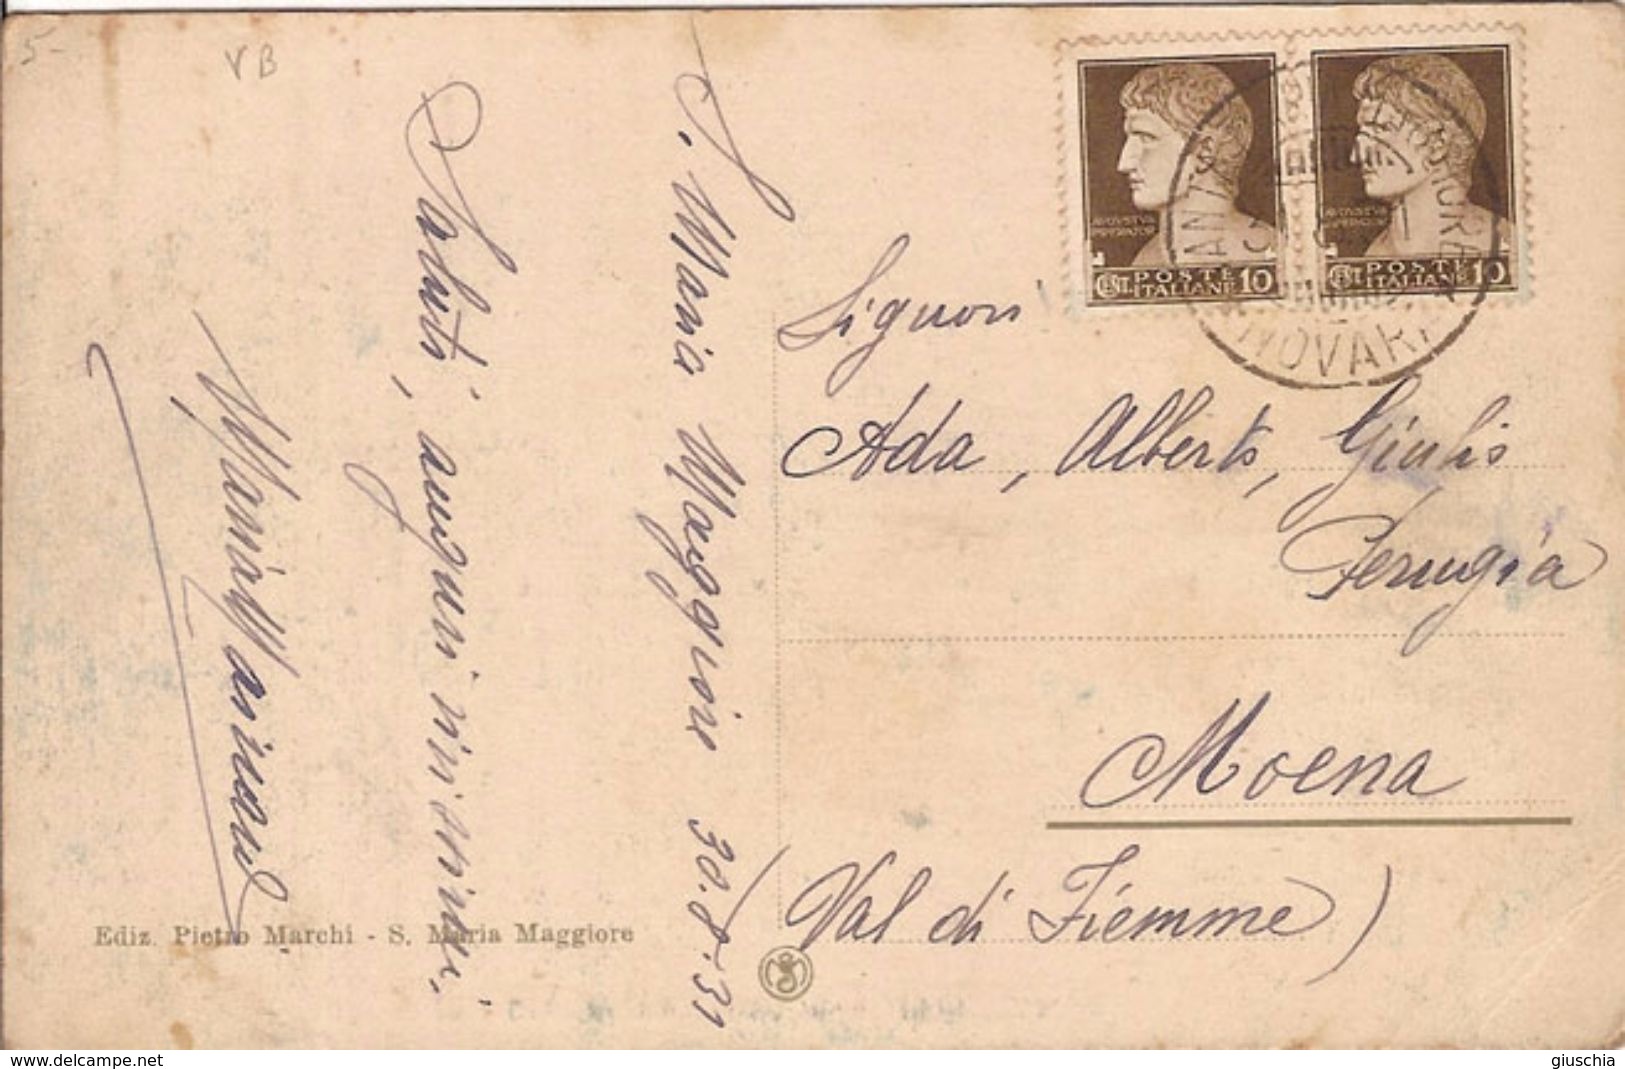 5-
VB
S. Maria Maggiore 30.8.31
Saluti, auguri vivissimi.
Ediz. Pietro Marchi - S. Maria Maggiore
AVGVSTVS
IMPERATOR
POSTE
ITALIANE 10
AVGVSTVS
IMPERATOR
POSTE
ITALIANE 10
NOVARA
Signori
Ada, Alberto, Giulio
Perugia
Moena
(Val di Fiemme)
www.delcampe.net
giuschia